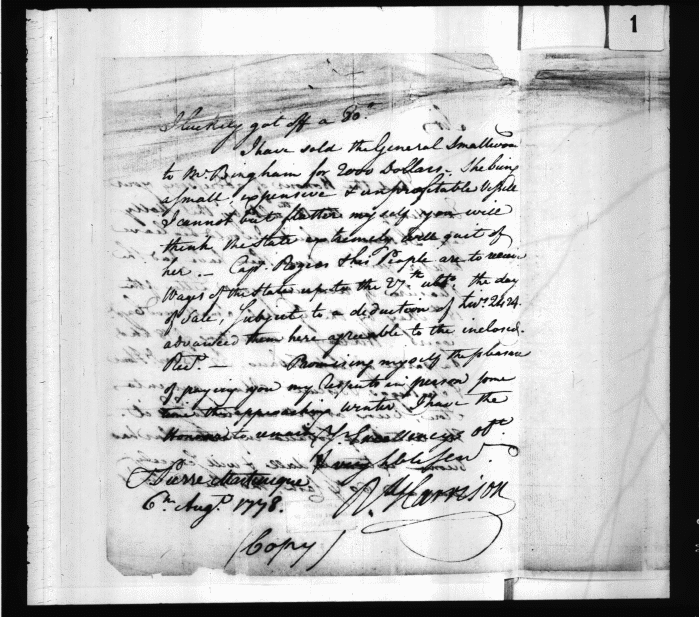 1
luckily got off a
I have sold the General Smallwood
to Mr. Bingham for 2000 Dollars — She being
a small, expensive & unprofitable Vessell
I cannot but flatter my self you will
think the State extremely well quit of
her. — Capt. Rogers & his People are to receive
Wages of the State up to the 27.th ulto. the day
of Sale, subject to a deduction of 2424
advanced them here agreeable to the inclosed
Rect. — Promising myself the pleasure
of paying you my respects in person some
time the approaching winter I have the
Honour to remain Yr. Excellencys obt.
& very hble Serv.
St. Pierre Martinique
6th Augt. 1778.
Rd Harrison
(Copy)